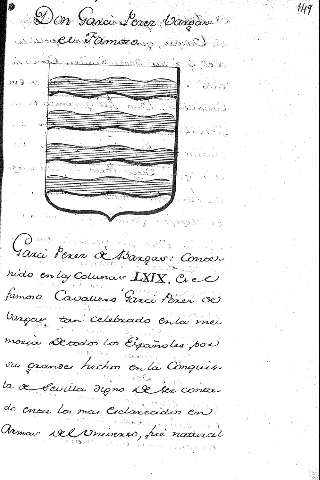 Don Garci Perez Vargas
el Famoso
149
Garci Perez de Vargas: Conte-
nido en las Colunas LXIX. Es el
famoso Cavallero Garci Perez de
Vargas, tan celebrado en la me-
moria de todos los Españoles por
sus grandes hechos en la Conquis-
ta de Sevilla digno de ser conta-
do entre los mas esclarecidos en
Armas del Universo, fue natural